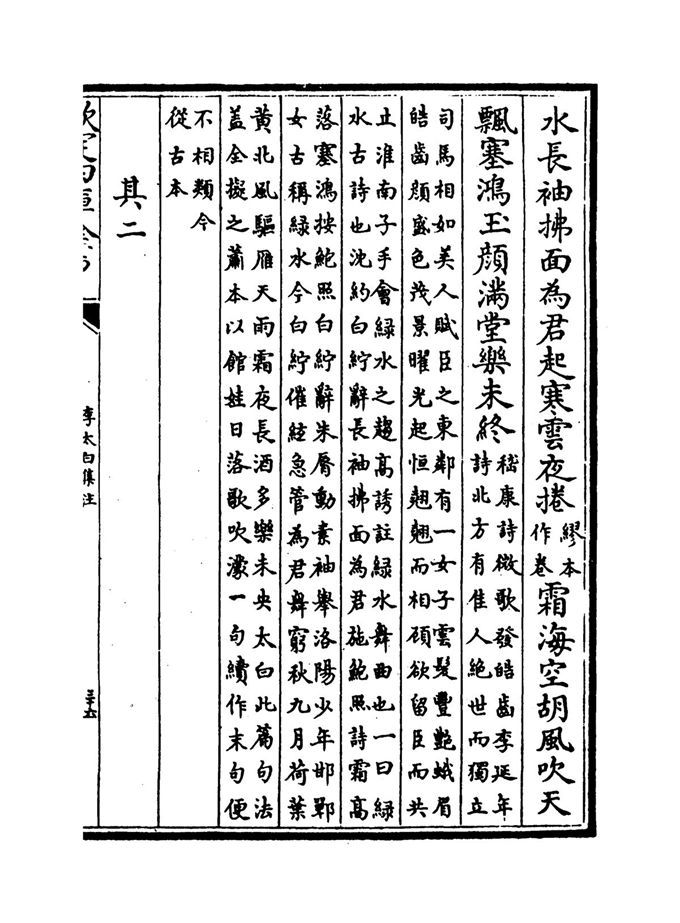 水長袖拂面為君起寒雲夜捲繆本作卷霜海空胡風吹天
飄塞鴻玉顔滿堂樂未終嵇康詩微歌發皓齒李延年詩北方有佳人絶世而獨立
司馬相如美人賦臣之東鄰有一女子雲髮豐艷蛾眉
皓齒顔盛色茂景曜光起恒翹翹而相顧欲留臣而共
止淮南子手會緑水之趨高誘註緑水舞曲也一曰緑
水古詩也沈約白紵辭長袖拂面為君施鮑照詩霜高
落塞鴻按鮑照白紵辭朱脣動素袖舉洛陽少年邯鄲
女古稱緑水今白紵催絃急管為君舞窮秋九月荷葉
黄北風驅雁天雨霜夜長酒多樂未央太白此篇句法
盖全擬之蕭本以館娃日落歌吹濛一句續作末句便
不相類今
從古本
其二
欽定四庫全書
李太白集注
三十六